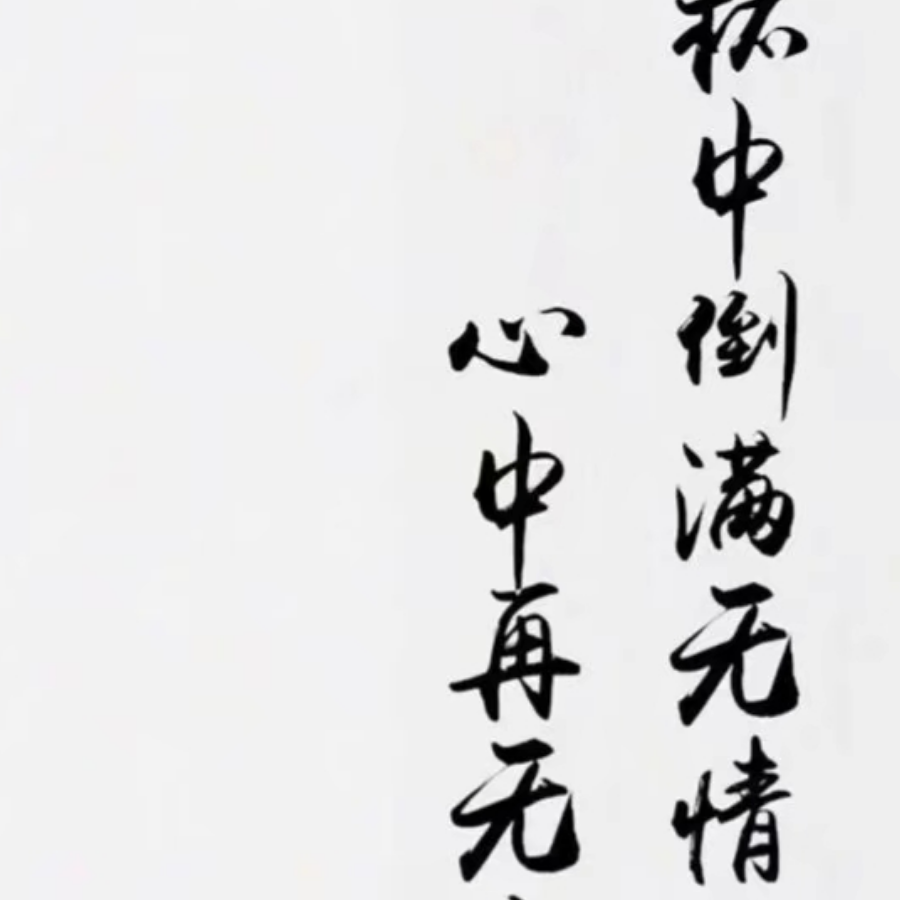 杯中倒满无情
心中再无